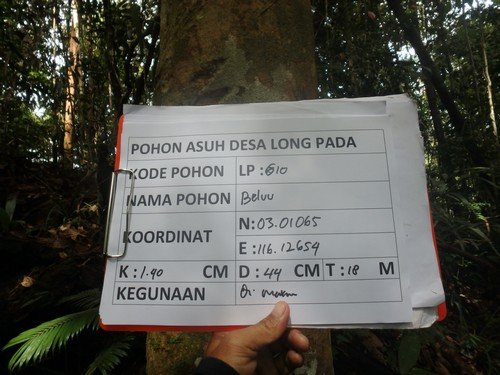 POHON ASUH DESA LONG PADA
KODE POHON LP : 610
NAMA POHON Beluu
KOORDINAT N : 03.01065
E : 116.12654
K : 1.40 CM D : 44 CM T : 18 M
KEGUNAAN Di makan